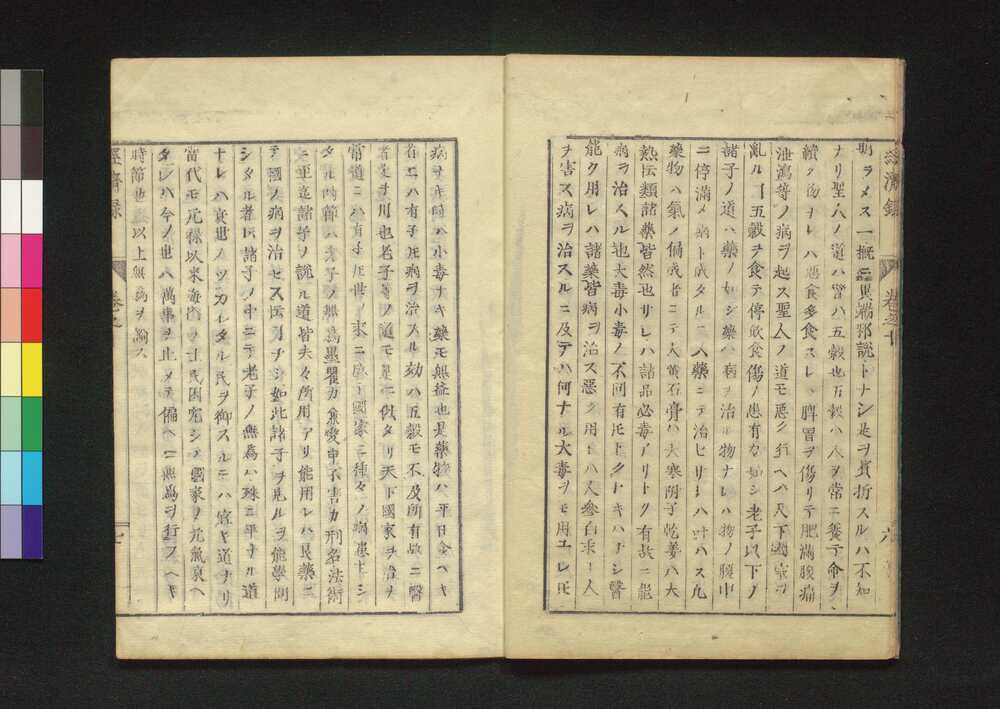 明ラメス一概ニ異端邪説トナシ是ヲ貶折スルハ不知
ナリ聖人ノ道ハ譬ハ五穀也五穀ハ人ヲ常ニ養テ命ヲ
續ク物ナレハ悪食多食スレハ脾胃ヲ傷リテ肥満腹痛
泄瀉等ノ病ヲ起ス聖人ノ道モ悪ク行ヘハ天下國家ヲ
亂ルヿ五穀ヲ食テ停飲食傷ノ患有カ如シ老子以下ノ
諸子ノ道ハ藥ノ如シ藥ハ病ヲ治ル物ナレハ物ノ腹中
ニ停滿メ病ト成タルニハ藥ニテ治セサレハ叶ハス凡
藥物ハ氣ノ偏成者ニテ大黄石膏ハ大寒附子乾姜ハ大
熱伝類諸藥皆然也サレハ諸品必毒アリトク有故ニ能
病ヲ治スル也大毒小毒ノ不同有トクナキハナシ醫
能ク用レハ諸藥皆病ヲ治ス悪ク用レハ人參白朮モ人
ヲ害ス病ヲ治スルニ及テハ何ナル大毒ヲモ用ユレ𪜈
經濟録
巻之十
六
病ヲナキ時ハ小毒ナキ藥モ無益也是藥物ハ平日食ヘキ
者ニハ有子𪜈病ヲ治スル効ハ五穀モ不及所有故ニ醫
者是ヲ用也老子等ノ道モ是ニ似タリ天下國家ヲ治ル
常道ニハ有子𪜈世ノ末ニ成テ國家ニ種々ノ病患生シ
タル時節ハ老子ノ無爲墨翟カ兼愛申不害カ刑名法術
其至迄諸子ノ説ル道皆夫々所用アリ能用レハ良藥ニ
テ國ノ病ヲ治セスト云フヿナシ如此諸子ヲ見ルヲ能學問
シタル者𪜈諸子ノ中ニテ老子ノ無爲ハ殊ニ平ナル道
ナレハ衰世ノツカレタル民ヲ御スルニハ宜キ道ナリ
當代モ元禄以來海内ノ士民困窮シテ國家ノ元氣衰ヘ
タレハ今ノ世ハ萬事ヲ止メテ偏ヘニ無爲ヲ行フヘキ
時節也以上無爲ヲ論ス
經濟録
巻之
七